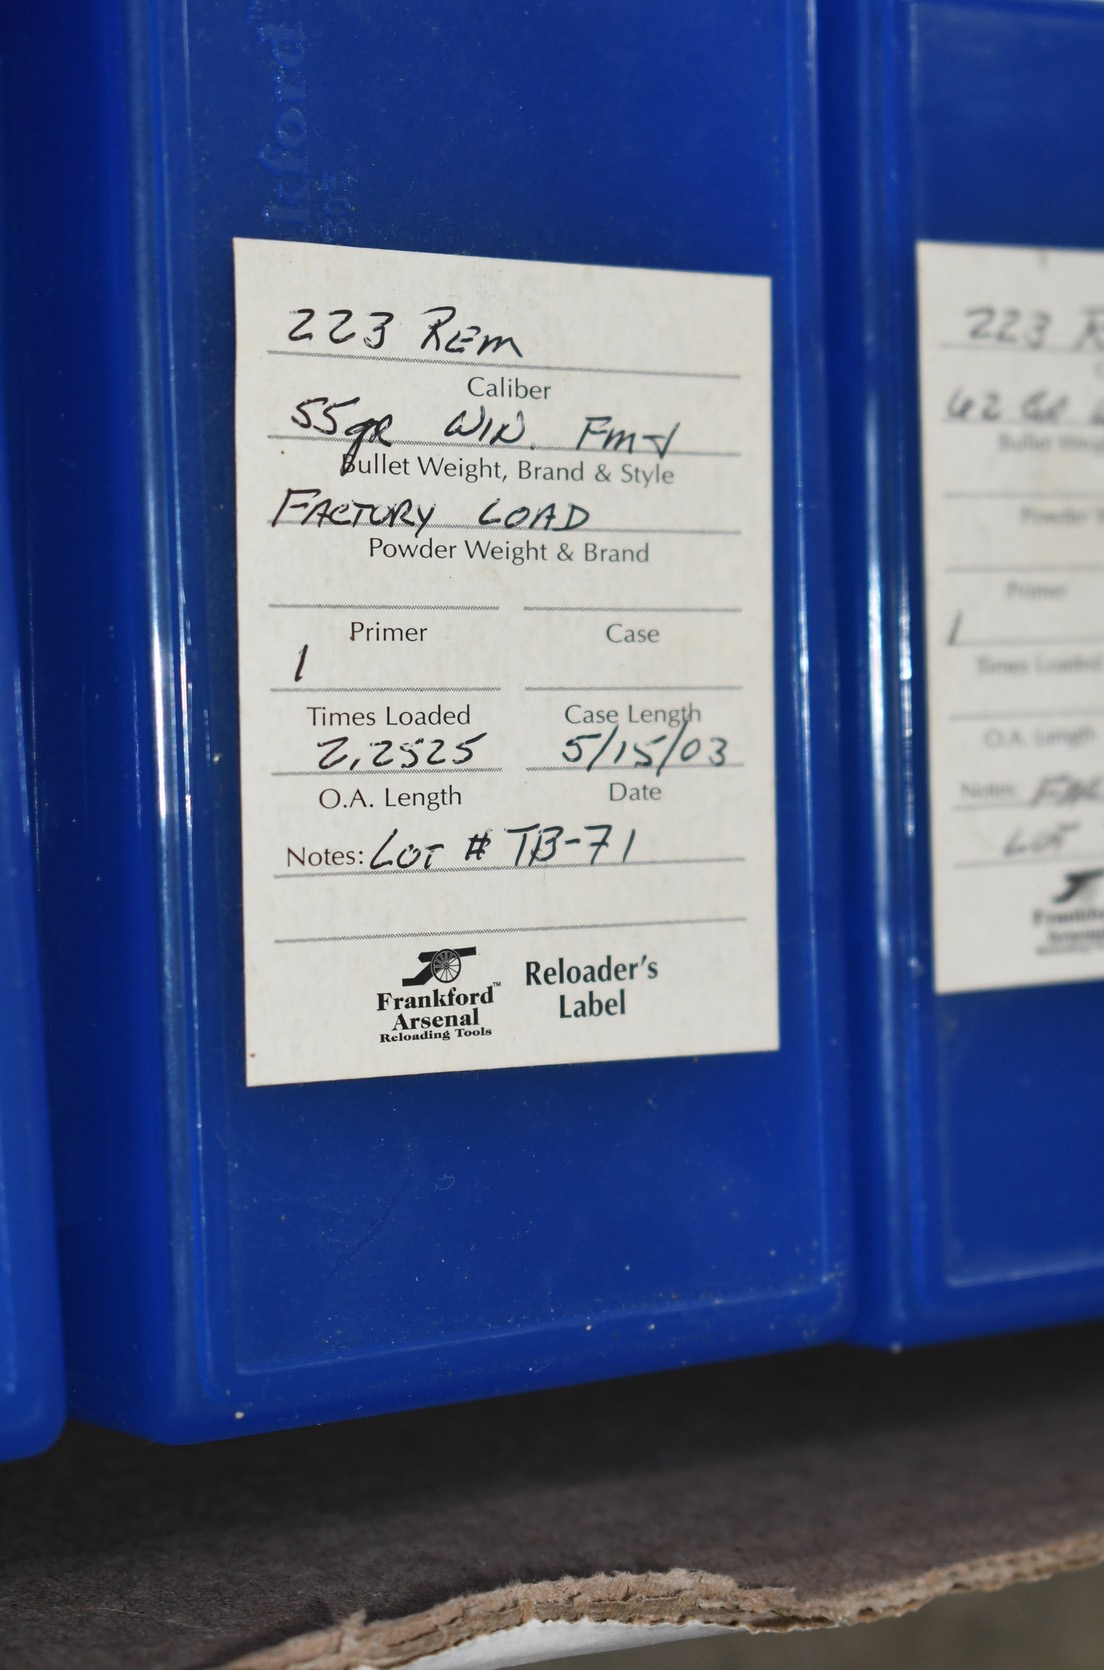 kford
223 REM
Caliber
55gr WIN. FMJ
Bullet Weight, Brand & Style
FACTORY LOAD
Powder Weight & Brand
Primer
Case
1
Times Loaded
Case Length
2.2525
5/15/03
O.A. Length
Date
Notes: LOT # TB-71
Frankford™
Arsenal
Reloading Tools
Reloader's
Label
223 R
62 GR
Bullet Weig
Powder W
Primer
1
Times Loaded
O.A. Length
Notes: FAC
LOT
Frankfo
Arsena